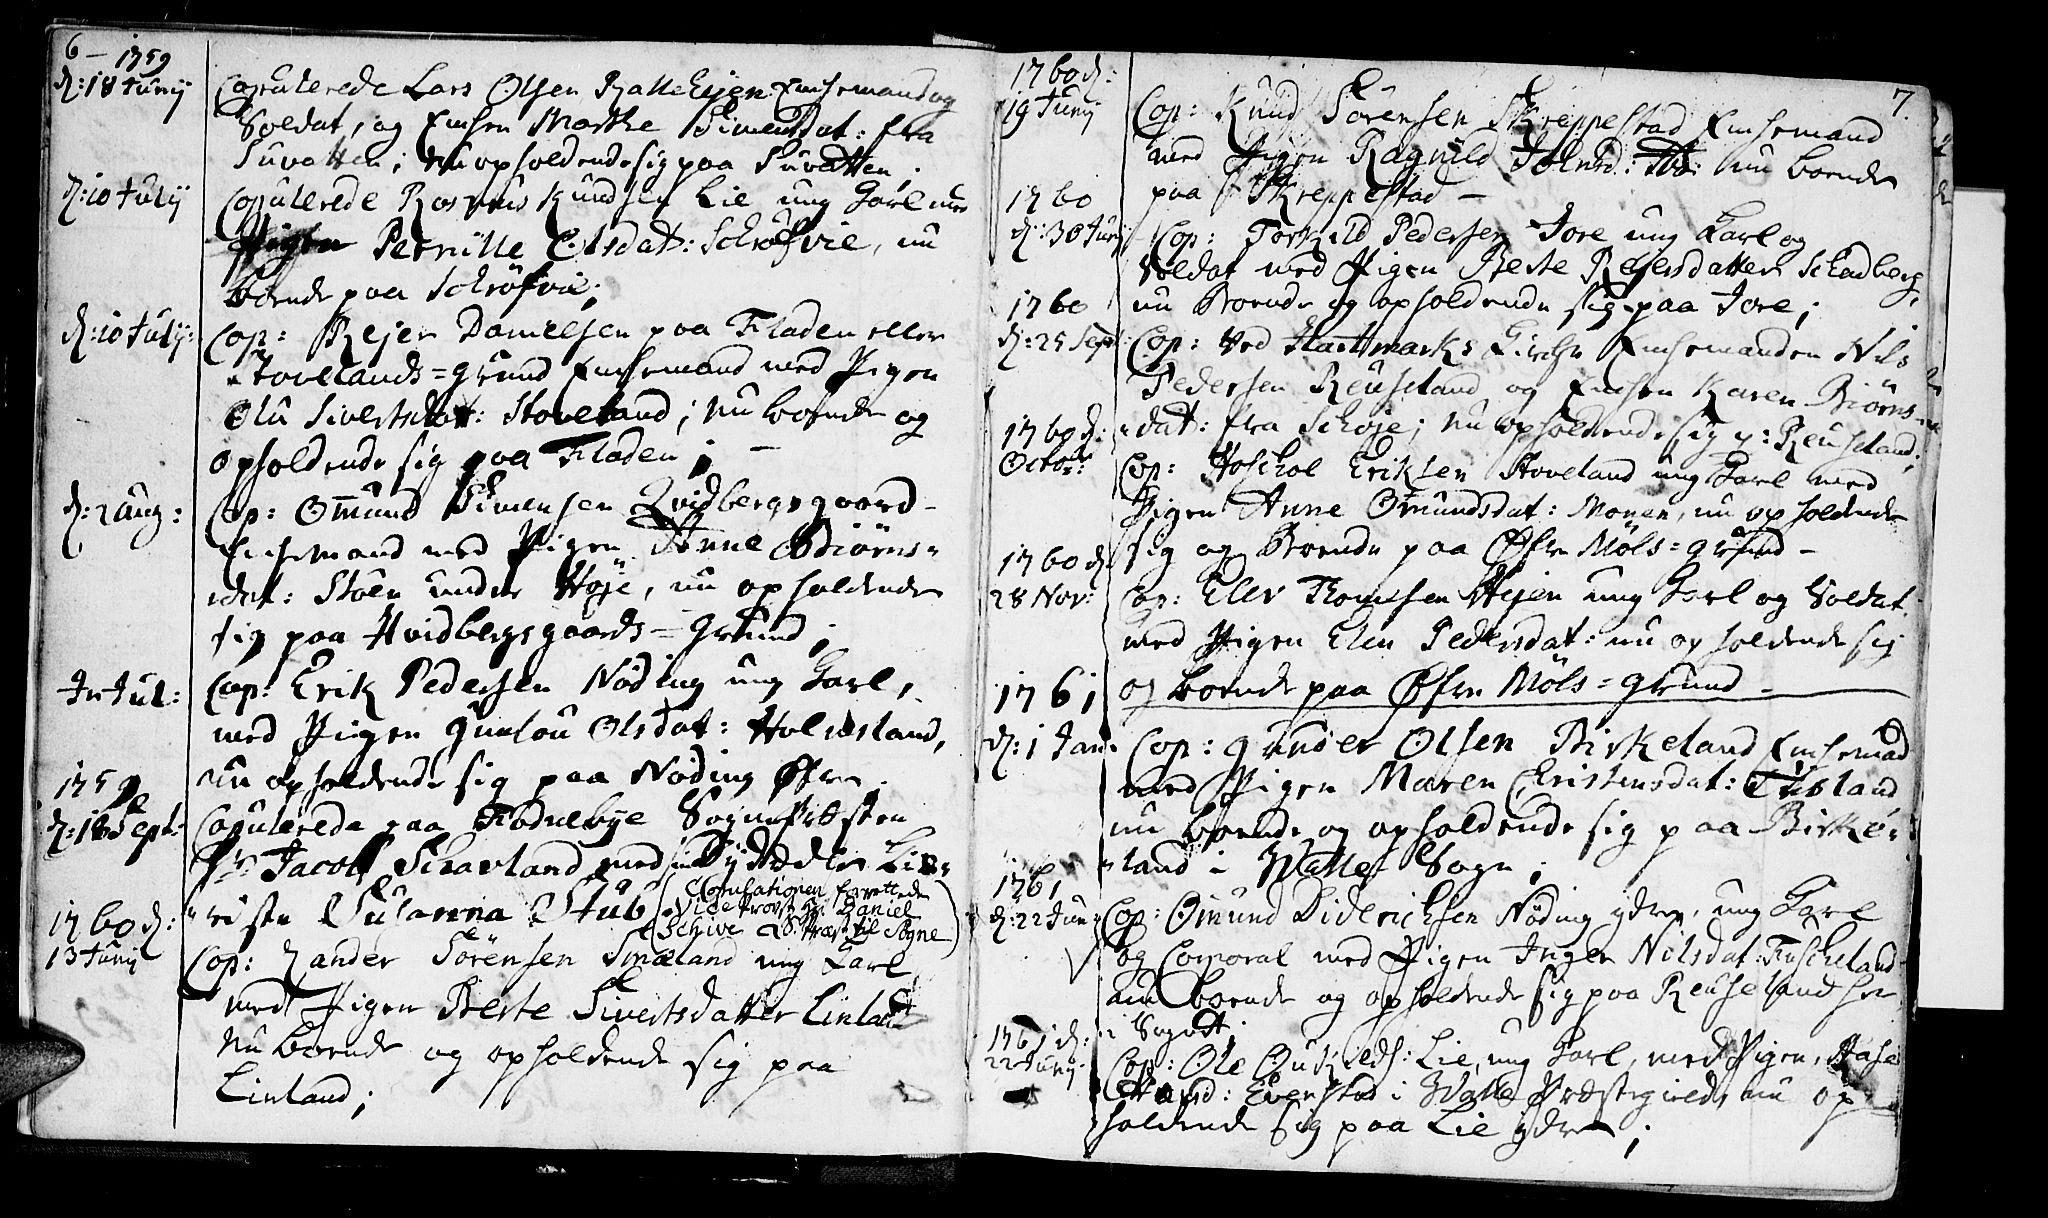 6 - 1759
d: 18 Junij Copulerede Lars Olsen Enchemand og
Soldat, og Enchen Marthe Simensdat: fra
Suvatten; nu opholdende sig paa Suvatten;
d: 10 Julij Copulerede Rasmus Knudsen Lie ung Karl med
Pigen Pernille Olsdat: Schröfvie, nu
boende paa Schröfvie;
d: 10 Julij: Cop: Rejer Danielsen paa Fladen eller
Stovelands=grund Enchemand med Pigen
Olu Sivertsdat: Stoveland; nu boende og
opholdende sig paa Fladen; -
d: 2 Aug: Cop: Omund Simensen Qvidbergsgaard
Enchemand med Pigen Anne Biörns-
dat: Stöen under Höje, nu opholdende
sig paa Hvidbergsgaards=grund;
In Jul: Cop: Erik Pedersen Nöding ung Karl,
med Pigen Gunlou Olsdat: Holmsland,
nu opholdende sig paa Nöding Øfre.
1759
d: 18 Sept: Copulerede paa Sognepræsten
Hr: Jacob Schavland med
Susanna Stub (Copulationen forrettede
Vice Provst Hr: Daniel
Schive S: Præst til Sogne)
1760 d:
13 Junij Cop: Zander Sörensen Smæland ung Karl
med Pigen Berte Sivertsdatter Linland
Nu boende og opholdende sig paa
Linland;
7.
1760 d:
19 Junij Cop: Knud Sörensen Skreppestad Enchemand
med Pigen Ragnild nu boende
paa Skreppestad -
1760
d: 30 Junij Cop: Torkild Pedersen Jore ung Karl og
Soldat med Pigen Berte Rejersdatter Schadberg,
nu Boende og opholdende sig paa Jore;
1760
d: 25 Sept: Cop: Ved Hartmarks Kirche Enchemanden Nils
Pedersen Reuseland og Enchen Karen Biörns-
dat: fra Schöje; nu opholdende sig p: Reuseland;
1760 d:
Octobr: Cop: Hoschol Eriksen Stoveland ung Karl med
Pigen Anne Omundsdat: Monen, nu opholdende
sig og Boende paa Øfre Möls=grund -
1760 d.
28 Nov: Cop: Elev Thomesen Stejen ung Karl og Soldat
med Pigen Elen Pedersdat: nu opholdende sig
og boende paa Øfre Möls=grund -
1761
d: 1 Jan: Cop: Gunder Olsen Birkeland Enchemand
med Pigen Maren Christensdat:
nu boende og opholdende sig paa Birke-
land i Halle Sogn;
1761
d: 22 Junij Cop: Omund Diderichsen Nöding ydre, ung Karl
og Corporal med Pigen Inger Nilsdat: Fuscheland
nu boende og opholdende sig paa Reuseland her
i Sognet;
1761 d:
22 Junij Cop: Ole Lie, ung Karl, med Pigen Aase
Evenstad i Halle Præstegield, nu op-
holdende sig paa Lie ydre;